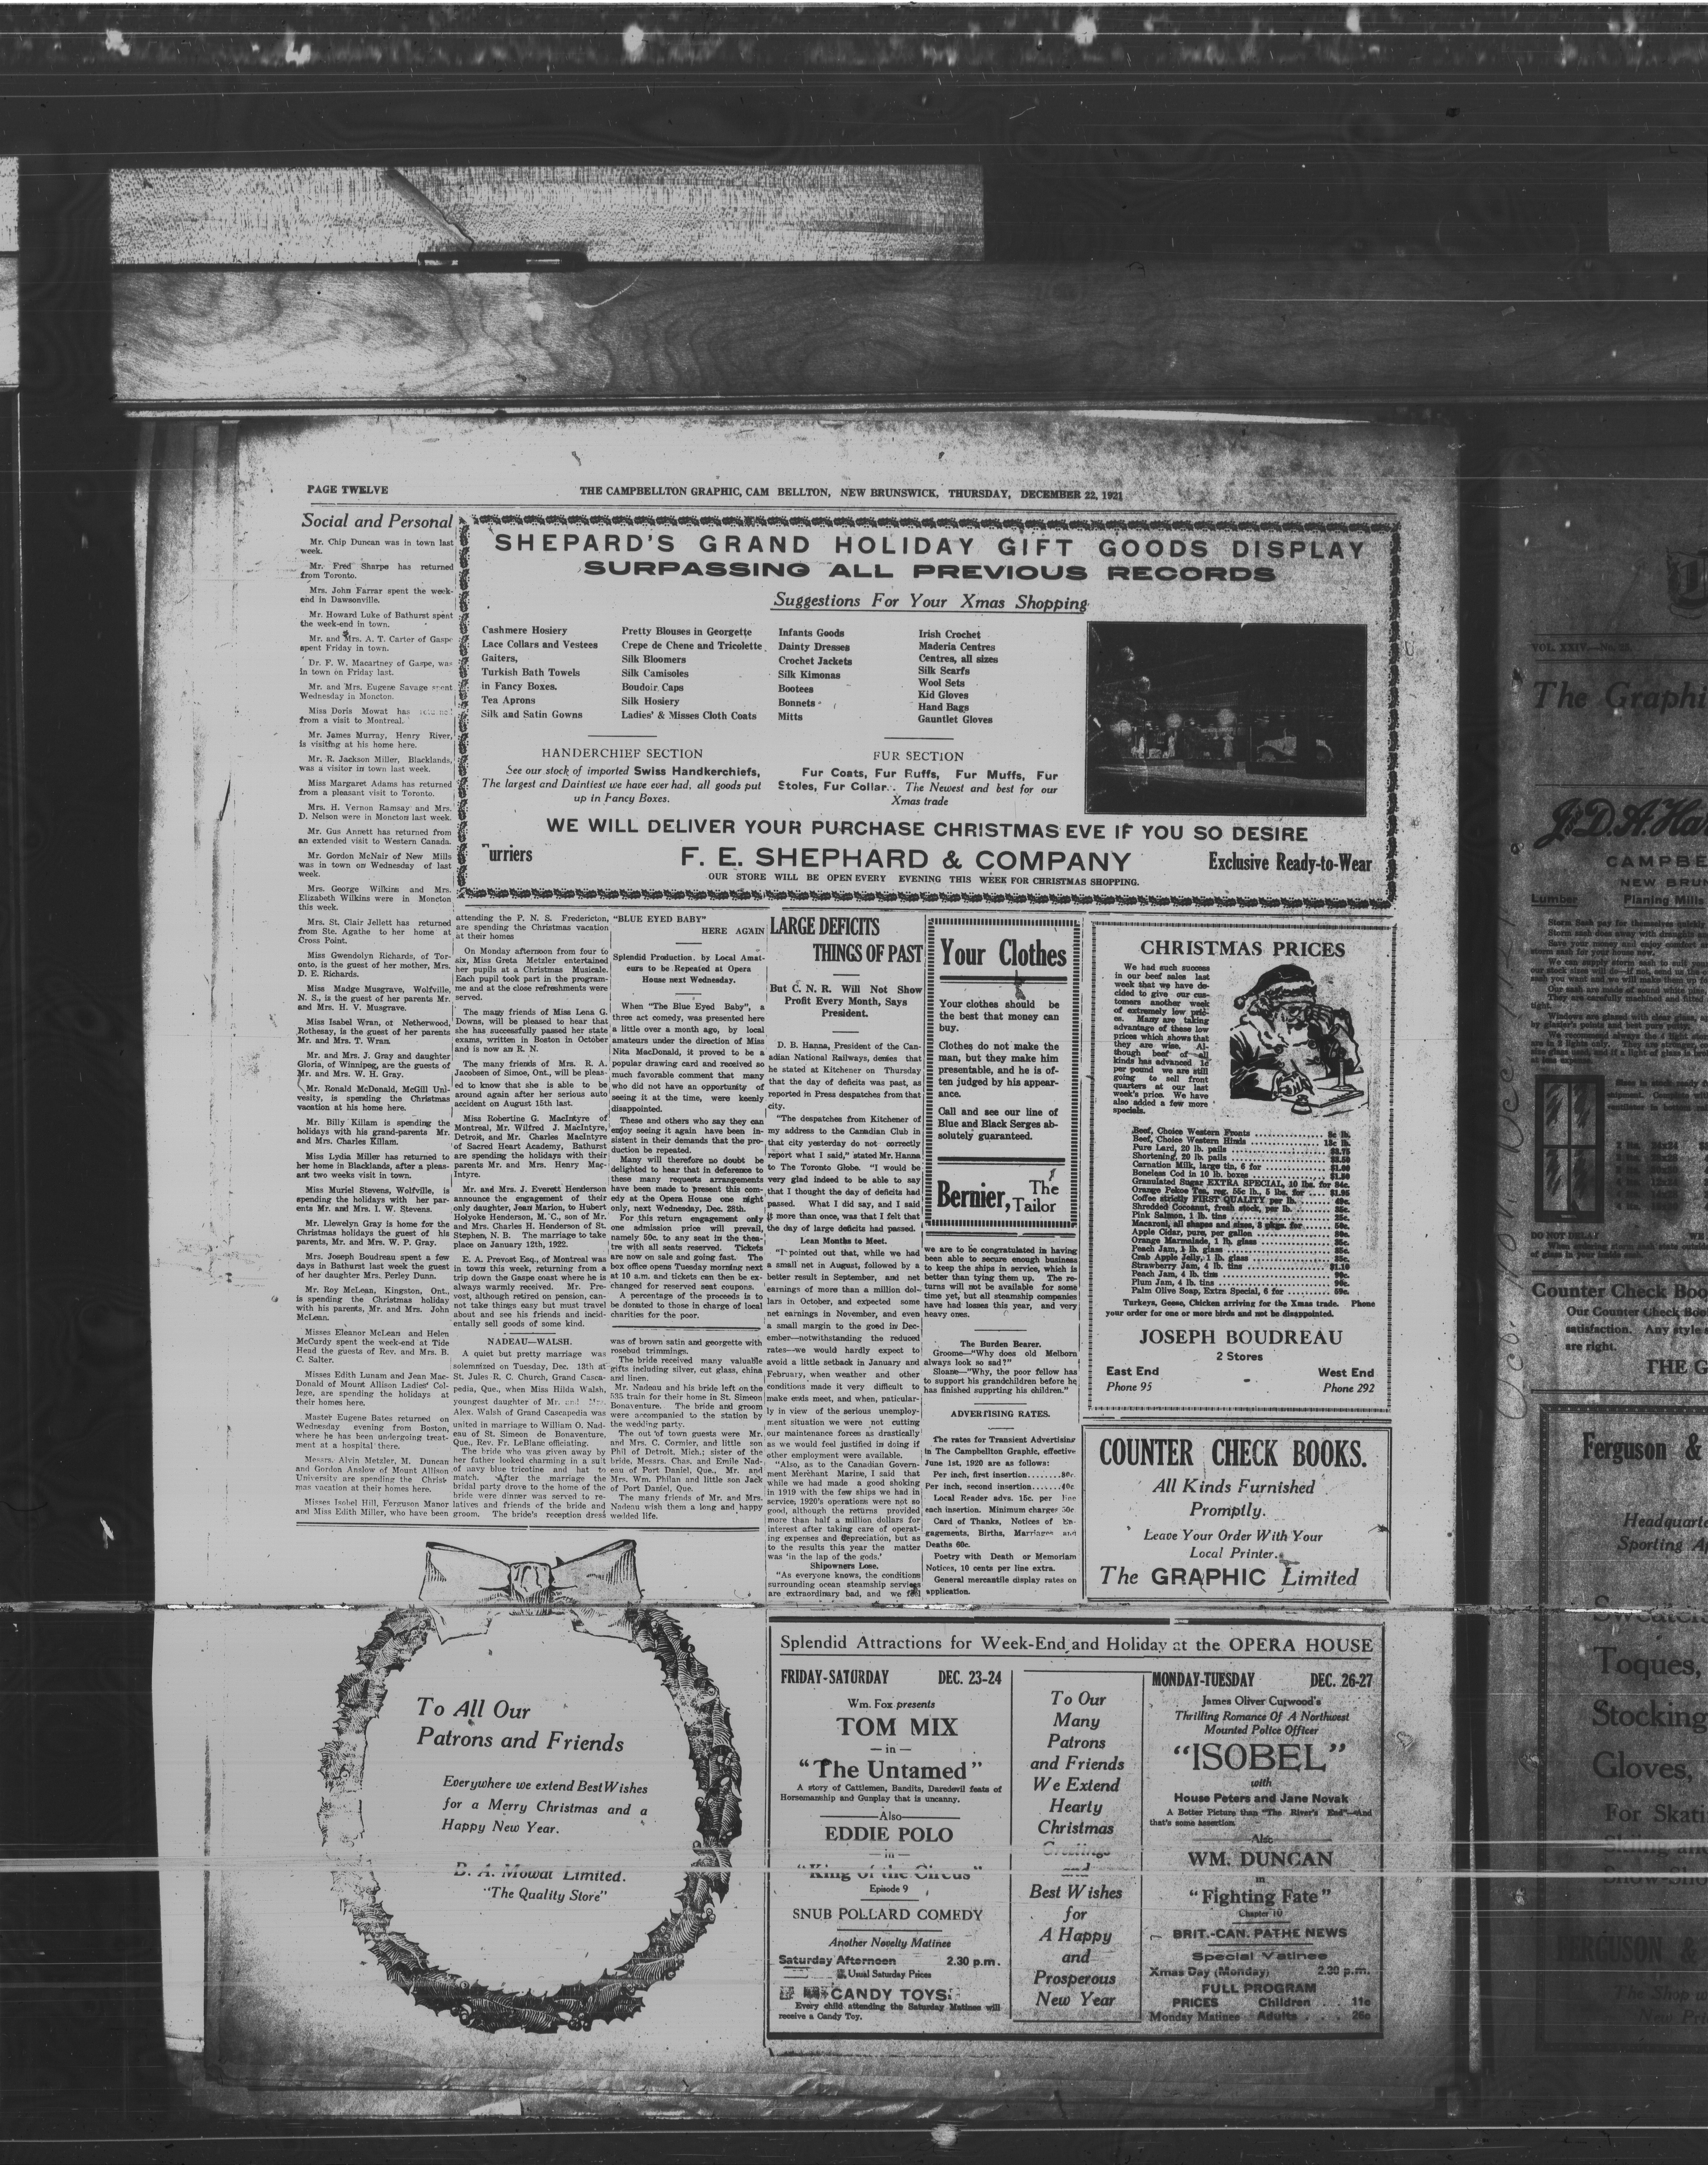 PAGE TWELVE
THE CAMPBELLTON GRAPHIC, CAM BELLTON, NEW BRUNSWICK, THURSDAY, DECEMBER 22, 1921
Social and Personal
Mr. Chip Duncan was in town last
week.
Mr. Fred Sharpe has returned
from Toronto.
Mrs. John Farrar spent the week-
end in Dawsonville.
Mr. Howard Luke of Bathurst spent
the week-end in town.
Mr. and Mrs. A. T. Carter of Gaspe
spent Friday in town.
Dr. F. W. Macartney of Gaspe, was
in town on Friday last.
Mr. and Mrs. Eugene Savage spent
Wednesday in Moncton.
Miss Doris Mowat has
from a visit to Montreal.
Mr. James Murray, Henry River,
is visiting at his home here.
Mr. R. Jackson Miller, Blacklands,
was a visitor in town last week.
Miss Margaret Adams has returned
from a pleasant visit to Toronto.
Mrs. H. Vernon Ramsay and Mrs.
D. Nelson were in Moncton last week.
Mr. Gus Annett has returned from
an extended visit to Western Canada.
Mr. Gordon McNair of New Mills
was in town on Wednesday of last
week.
Mrs. George Wilkins and Mrs.
Elizabeth Wilkins were in Moncton
this week.
Mrs. St. Clair Jellett has returned
from Ste. Agathe to her home at
Cross Point.
Miss Gwendolyn Richards, of Tor-
onto, is the guest of her mother, Mrs.
D. E. Richards.
Miss Madge Musgrave, Wolfville,
N. S., is the guest of her parents Mr.
and Mrs. H. V. Musgrave.
Miss Isabel Wran, of Netherwood,
Rothesay, is the guest of her parents
Mr. and Mrs. T. Wran.
Mr. and Mrs. J. Gray and daughter
Gloria, of Winnipeg, are the guests of
Mr. and Mrs. W. H. Gray.
Mr. Ronald McDonald, McGill Uni-
vesity, is spending the Christmas
vacation at his home here.
Mr. Billy Killam is spending the
holidays with his grand-parents Mr.
and Mrs. Charles Killam.
Miss Lydia Miller has returned to
her home in Blacklands, after a pleas-
ant two weeks visit in town.
Miss Muriel Stevens, Wolfville, is
spending the holidays with her par-
ents Mr. and Mrs. I. W. Stevens.
Mr. Llewelyn Gray is home for the
Christmas holidays the guest of his
parents, Mr. and Mrs. W. P. Gray.
Mrs. Joseph Boudreau spent a few
days in Bathurst last week the guest
of her daughter Mrs. Perley Dunn.
Mr. Roy McLean, Kingston, Ont.,
is spending the Christmas holiday
with his parents, Mr. and Mrs. John
McLean.
Misses Eleanor McLean and Helen
McCurdy spent the week-end at Tide
Head the guests of Rev. and Mrs. B.
C. Salter.
Misses Edith Lunam and Jean Mac-
Donald of Mount Allison Ladies' Col-
lege, are spending the holidays at
their homes here.
Master Eugene Bates returned on
Wednesday evening from Boston,
where he has been undergoing treat-
ment at a hospital there.
Messrs. Alvin Metzler, M. Duncan
and Gordon Anslow of Mount Allison
University are spending the Christ-
mas vacation at their homes here.
Misses Isobel Hill, Ferguson Manor
and Miss Edith Miller, who have been
SHEPARD'S GRAND HOLIDAY GIFT GOODS DISPLAY
SURPASSING ALL PREVIOUS RECORDS
Suggestions For Your Xmas Shopping
Cashmere Hosiery
Lace Collars and Vestees
Gaiters,
Turkish Bath Towels
in Fancy Boxes.
Tea Aprons
Silk and Satin Gowns
Pretty Blouses in Georgette
Crepe de Chene and Tricolette
Silk Bloomers
Silk Camisoles
Boudoir Caps
Silk Hosiery
Ladies' & Misses Cloth Coats
Infants Goods
Dainty Dresses
Crochet Jackets
Silk Kimonas
Bootees
Bonnets
Mitts
Irish Crochet
Maderia Centres
Centres, all sizes
Silk Scarfs
Wool Sets
Kid Gloves
Hand Bags
Gauntlet Gloves
HANDERCHIEF SECTION
See our stock of imported Swiss Handkerchiefs,
The largest and Daintiest we have ever had, all goods put
up in Fancy Boxes.
FUR SECTION
Fur Coats, Fur Ruffs, Fur Muffs, Fur
Stoles, Fur Collar. The Newest and best for our
Xmas trade
WE WILL DELIVER YOUR PURCHASE CHRISTMAS EVE IF YOU SO DESIRE
urriers
F. E. SHEPHARD & COMPANY
Exclusive Ready-to-Wear
OUR STORE WILL BE OPEN EVERY EVENING THIS WEEK FOR CHRISTMAS SHOPPING.
attending the P. N. S. Fredericton,
are spending the Christmas vacation
at their homes
On Monday afternoon from four to
six, Miss Greta Metzler entertained
her pupils at a Christmas Musicale.
Each pupil took part in the program-
me and at the close refreshments were
served.
The many friends of Miss Lena G.
Downs, will be pleased to hear that
she has successfully passed her state
exams, written in Boston in October
and is now an R. N.
The many friends of Mrs. R. A.
Jacobsen of Simoe, Ont., will be pleas-
ed to know that she is able to be
around again after her serious auto
accident on August 15th last.
Miss Robertine G. MacIntyre of
Montreal, Mr. Wilfred J. MacIntyre,
Detroit, and Mr. Charles MacIntyre
of Sacred Heart Academy, Bathurst
are spending the holidays with their
parents Mr. and Mrs. Henry Mac-
Intyre.
Mr. and Mrs. J. Everett Henderson
announce the engagement of their
only daughter, Jean Marion, to Hubert
Holyoke Henderson, M.C., son of Mr.
and Mrs. Charles H. Henderson of St.
Stephen, N. B. The marriage to take
place on January 12th, 1922.
E. A. Prevost Esq., of Montreal was
in town this week, returning from a
trip down the Gaspe coast where he is
always warmly received. Mr. Pre-
vost, although retired on pension, can-
not take things easy but must travel
about and see his friends and incid-
entally sell goods of some kind.
NADEAU—WALSH.
A quiet but pretty marriage was
solemnized on Tuesday, Dec. 13th at
St. Jules R. C. Church, Grand Casca-
pedia, Que., when Miss Hilda Walsh,
youngest daughter of Mr. and Mrs.
Alex. Walsh of Grand Cascapedia was
united in marriage to William O. Nad-
eau of St. Simeon de Bonaventure,
Que., Rev. Fr. LeBlanc officiating.
The bride who was given away by
her father looked charming in a suit
of navy blue tricotine and hat to
match. After the marriage the
bridal party drove to the home of the
bride were dinner was served to re-
latives and friends of the bride and
groom. The bride's reception dress
"BLUE EYED BABY"
HERE AGAIN
Splendid Production, by Local Amat-
eurs to be Repeated at Opera
House next Wednesday.
When "The Blue Eyed Baby", a
three act comedy, was presented here
a little over a month ago, by local
amateurs under the direction of Miss
Nita MacDonald, it proved to be a
popular drawing card and received so
much favorable comment that many
who did not have an opportunity of
seeing it at the time, were keenly
disappointed.
These and others who say they can
enjoy seeing it again have been in-
sistent in their demands that the pro-
duction be repeated.
Many will therefore no doubt be
delighted to hear that in deference to
these many requests arrangements
have been made to present this com-
edy at the Opera House one night
only, next Wednesday, Dec. 28th.
For this return engagement only
one admission price will prevail,
namely 50c. to any seat in the thea-
tre with all seats reserved. Tickets
are now on sale and going fast. The
box office opens Tuesday morning next
at 10 a.m. and tickets can then be ex-
changed for reserved seat coupons.
A percentage of the proceeds is to
be donated to those in charge of local
charities for the poor.
was of brown satin and georgette with
rosebud trimmings.
The bride received many valuable
gifts including silver, cut glass, china
and linen.
Mr. Nadeau and his bride left on the
535 train for their home in St. Simeon
Bonaventure. The bride and groom
were accompanied to the station by
the wedding party.
The out of town guests were Mr.
and Mrs. C. Cormier, and little son
Phil of Detroit, Mich.; sister of the
bride, Messrs. Chas. and Emile Nad-
eau of Port Daniel, Que., Mr. and
Mrs. Wm. Philan and little son Jack
of Port Daniel, Que.
The many friends of Mr. and Mrs.
Nadeau wish them a long and happy
wedded life.
LARGE DEFICITS
THINGS OF PAST
But C. N. R. Will Not Show
Profit Every Month, Says
President.
D. B. Hanna, President of the Can-
adian National Railways, denies that
he stated at Kitchener on Thursday
that the day of deficits was past, as
reported in Press despatches from that
city.
"The despatches from Kitchener of
my address to the Canadian Club in
that city yesterday do not correctly
report what I said," stated Mr. Hanna
to The Toronto Globe. "I would be
very glad indeed to be able to say
that I thought the day of deficits had
passed. What I did say, and I said
it more than once, was that I felt that
the day of large deficits had passed.
Lean Months to Meet.
"I pointed out that, while we had
a small net in August, followed by a
better result in September, and net
earnings of more than a million dol-
lars in October, and expected some
net earnings in November, and even
a small margin to the good in Dec-
ember—notwithstanding the reduced
rates—we would hardly expect to
avoid a little setback in January and
February, when weather and other
conditions made it very difficult to
make ends meet, and when, paticular-
ly in view of the serious unemploy-
ment situation we were not cutting
our maintenance forces as drastically
as we would feel justified in doing if
other employment were available.
"Also, as to the Canadian Govern-
ment Merchant Marine, I said that
while we had made a good shoking
in 1919 with the few ships we had in
service; 1920's operations were not so
good, although the returns provided
more than half a million dollars for
interest after taking care of operat-
ing expenses and depreciation, but as
to the results this year the matter
was 'in the lap of the gods.'
Shipowners Lose.
"As everyone knows, the conditions
surrounding ocean steamship services
are extraordinary bad, and we feel
Your Clothes
Your clothes should be
the best that money can
buy.
Clothes do not make the
man, but they make him
presentable, and he is of-
ten judged by his appear-
ance.
Call and see our line of
Blue and Black Serges ab-
solutely guaranteed.
Bernier, The Tailor
we are to be congratulated in having
been able to secure enough business
to keep the ships in service, which is
better than tying them up. The re-
turns will not be available for some
time yet, but all steamship companies
have had losses this year, and very
heavy ones.
The Burden Bearer.
Groome—"Why does old Melborn
always look so sad?"
Sloane—"Why, the poor fellow has
to support his grandchildren before he
has finished supprting his children."
ADVERTISING RATES.
The rates for Transient Advertising
in The Campbellton Graphic, effective
June 1st, 1920 are as follows:
Per inch, first insertion
Per inch, second insertion.......40c.
Local Reader advs. 15c. per line
each insertion. Minimum charges 50c.
Card of Thanks, Notices of En-
gagements, Births, Marriages and
Deaths 60c.
Poetry with Death or Memoriam
Notices, 10 cents per line extra.
General mercantile display rates on
application.
CHRISTMAS PRICES
We had such success
in our beef sales last
week that we have de-
cided to give our cus-
tomers another week
of extremely low pric-
es. Many are taking
advantage of these low
prices which shows that
they are wise. Al-
though beef of all
kinds has advanced 1c
per pound we are still
going to sell front
quarters at our last
week's price. We have
also added a few more
specials.
Beef, Choice Western Fronts
Beef, Choice Western Hinds
Pure Lard, 20 lb. pails
Shortening, 20 lb. pails
Carnation Milk, large tin, 6 for
Boneless Cod in 10 lb. boxes
Granulated Sugar EXTRA SPECIAL, 10 lbs. for
Orange Pekoe Tea, reg. 55c lb., 5 lbs. for
Coffee strictly FIRST QUALITY per lb.
Shredded Cocoanut, fresh stock, per lb.
Pink Salmon, 1 lb. tins
Macaroni, all shapes and sizes, 3 pkgs. for
Apple Cidar, pure, per gallon
Orange Marmalade, 1 lb. glass
Peach Jam, 1 lb. glass
Crab Apple Jelly, 1 lb. glass
Strawberry Jam, 4 lb. tins $1.10
Peach Jam, 4 lb. tins
Plum Jam, 4 lb. tins
Palm Olive Soap, Extra Special, 6 for
Turkeys, Geese, Chicken arriving for the Xmas trade. Phone
your order for one or more birds and not be disappointed.
JOSEPH BOUDREAU
2 Stores
East End West End
Phone 95 Phone 292
COUNTER CHECK BOOKS.
All Kinds Furnished
Promptly.
Leave Your Order With Your
Local Printer.
The GRAPHIC Limited
To All Our
Patrons and Friends
Everywhere we extend Best Wishes
for a Merry Christmas and a
Happy New Year.
B. A. Mowat Limited.
"The Quality Store"
Splendid Attractions for Week-End and Holiday at the OPERA HOUSE
FRIDAY-SATURDAY DEC. 23-24
Wm. Fox presents
TOM MIX
— in —
"The Untamed"
A story of Cattlemen, Bandits, Daredevil feats of
Horsemanship and Gunplay that is uncanny.
Also
EDDIE POLO
— in —
"King of the Circus"
Episode 9
SNUB POLLARD COMEDY
Another Novelty Matinee
Saturday Afternoon 2.30 p.m.
Usual Saturday Prices
CANDY TOYS
Every child attending the Saturday Matinee will
receive a Candy Toy.
To Our
Many
Patrons
and Friends
We Extend
Hearty
Christmas
Greetings
and
Best Wishes
for
A Happy
and
Prosperous
New Year
MONDAY-TUESDAY DEC. 26-27
James Oliver Curwood's
Thrilling Romance Of A Northwest
Mounted Police Officer
"ISOBEL"
with
House Peters and Jane Novak
A Better Picture than "The River's End"—And
that's some assertion.
Also
WM. DUNCAN
in
"Fighting Fate"
Chapter 10
BRIT.-CAN. PATHE NEWS
Special Matinee
Xmas Day (Monday) 2.30 p.m.
FULL PROGRAM
PRICES Children . . . 11c
Monday Matinee Adults . . . . 26c
VOL. XXIV.
The Graphi
J. D. A. Ha
CAMPBE
NEW BRUN
Lumber Planing Mills
DO NOT DELAY
Counter Check Boo
Our Counter Check Book
satisfaction. Any style
are right.
THE G
Ferguson &
Headquarte
Sporting
Toques,
Stocking
Gloves,
For Skati
The Shop